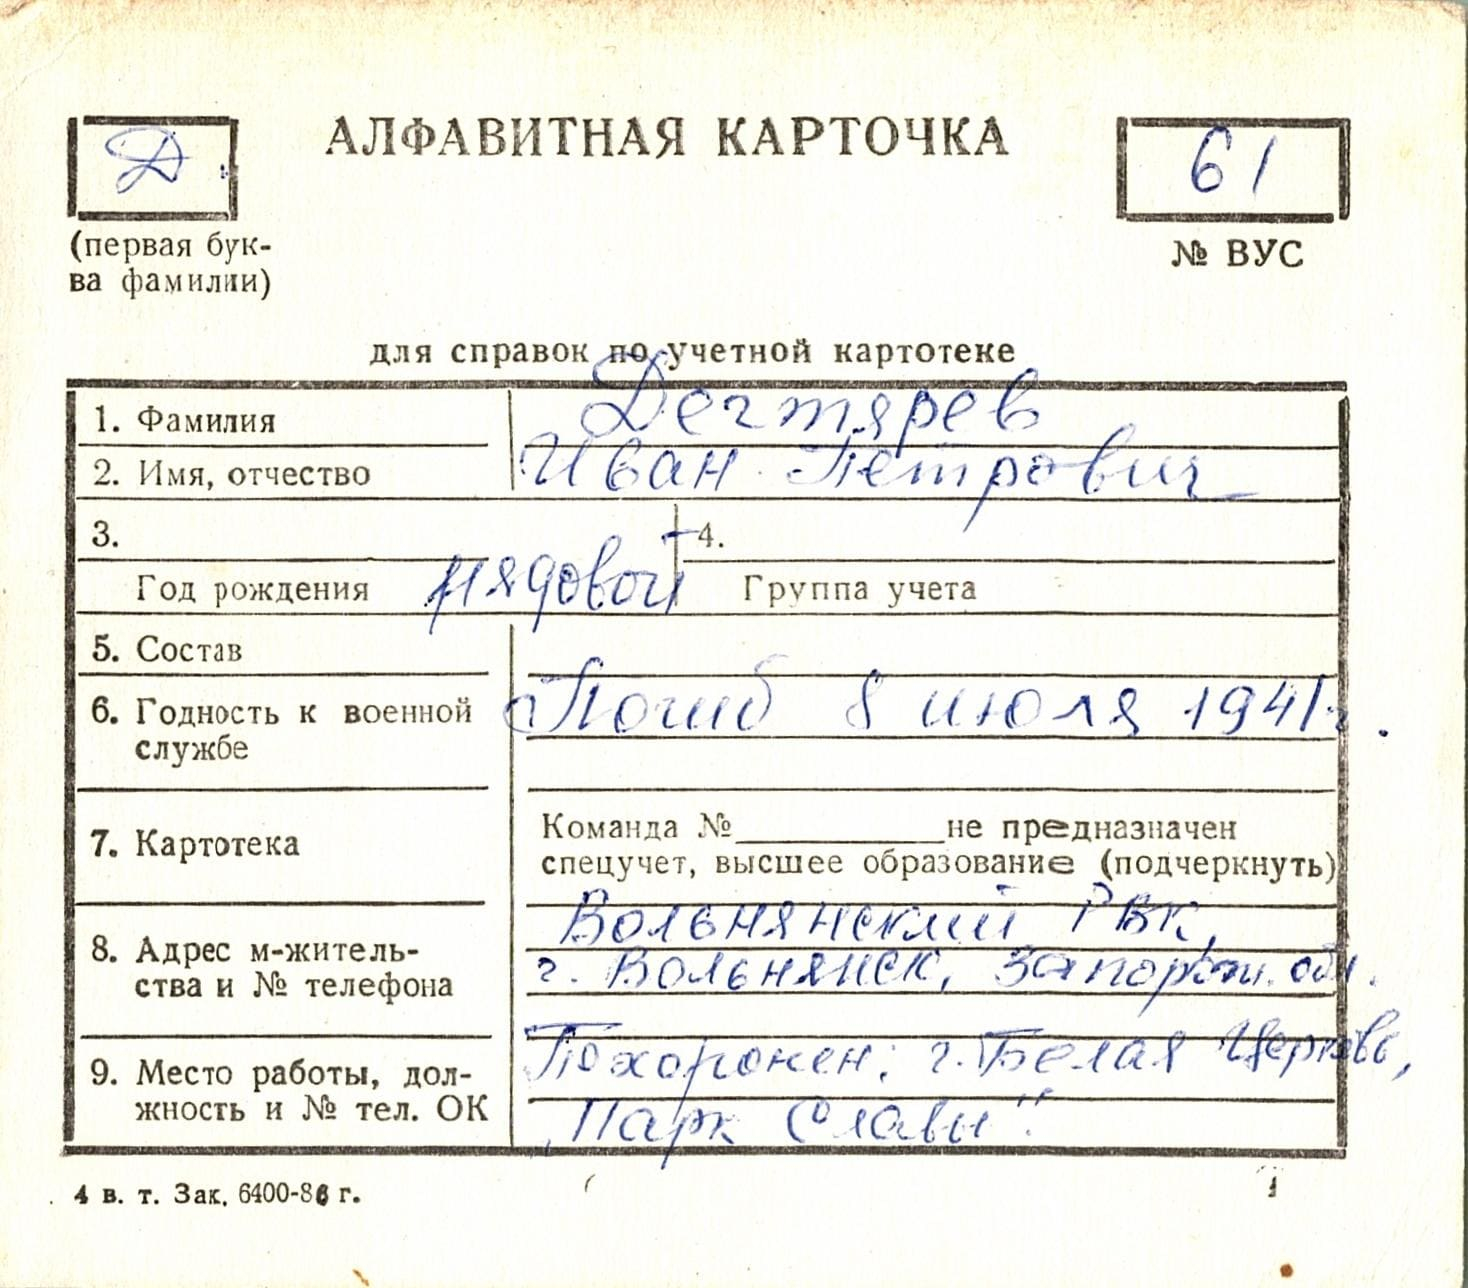 АЛФАВИТНАЯ КАРТОЧКА
Д
61
(первая бук-
ва фамилии)
№ ВУС
для справок по учетной картотеке
1. Фамилия Дегтярев
2. Имя, отчество Иван Петрович
3. 4.
Год рождения рядовой Группа учета
5. Состав
6. Годность к военной
службе
Погиб 8 июля 1941 г.
7. Картотека
Команда № не предназначен
спецучет, высшее образование (подчеркнуть)
8. Адрес м-житель-
ства и № телефона
Вольнянский РВК,
г. Вольнянск, Запорож. обл.
9. Место работы, дол-
жность и № тел. ОК
Похоронен: г. Белая Церковь,
"Парк Славы".
4 в. т. Зак. 6400-86 г.